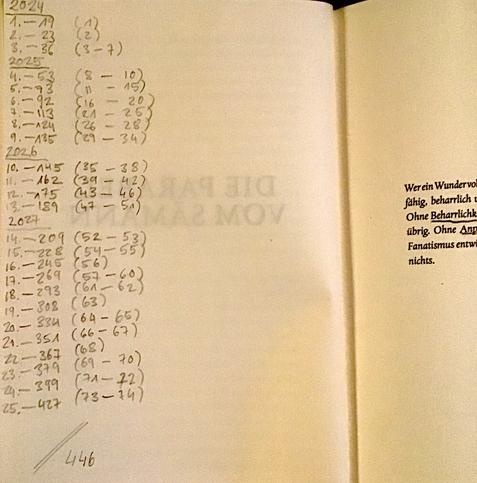 2024
1. - 19 (1)
2. - 23 (2)
3. - 36 (3-7)
2025
4. - 53 (8 - 10)
5. - 73 (11 - 15)
6. - 92 (16 - 20)
7. - 113 (21 - 25)
8. - 124 (26 - 28)
9. - 135 (29 - 34)
2026
10. - 145 (35 - 38)
11. - 162 (39 - 42)
12. - 175 (43 - 46)
13. - 189 (47 - 51)
2027
14. - 209 (52 - 53)
15. - 228 (54 - 55)
16. - 245 (56)
17. - 269 (57 - 60)
18. - 293 (61 - 62)
19. - 308 (63)
20. - 334 (64 - 65)
21. - 351 (66 - 67)
22 - 367 (68)
23 - 379 (69 - 70)
24. - 399 (71 - 72)
25. - 427 (73 - 74)
446
DIE PARA
VOM SÄMANN
Wer ein Wunder vol
fähig, beharrlich u
Ohne Beharrlichk
übrig. Ohne Anp
Fanatismus entwi
nichts.